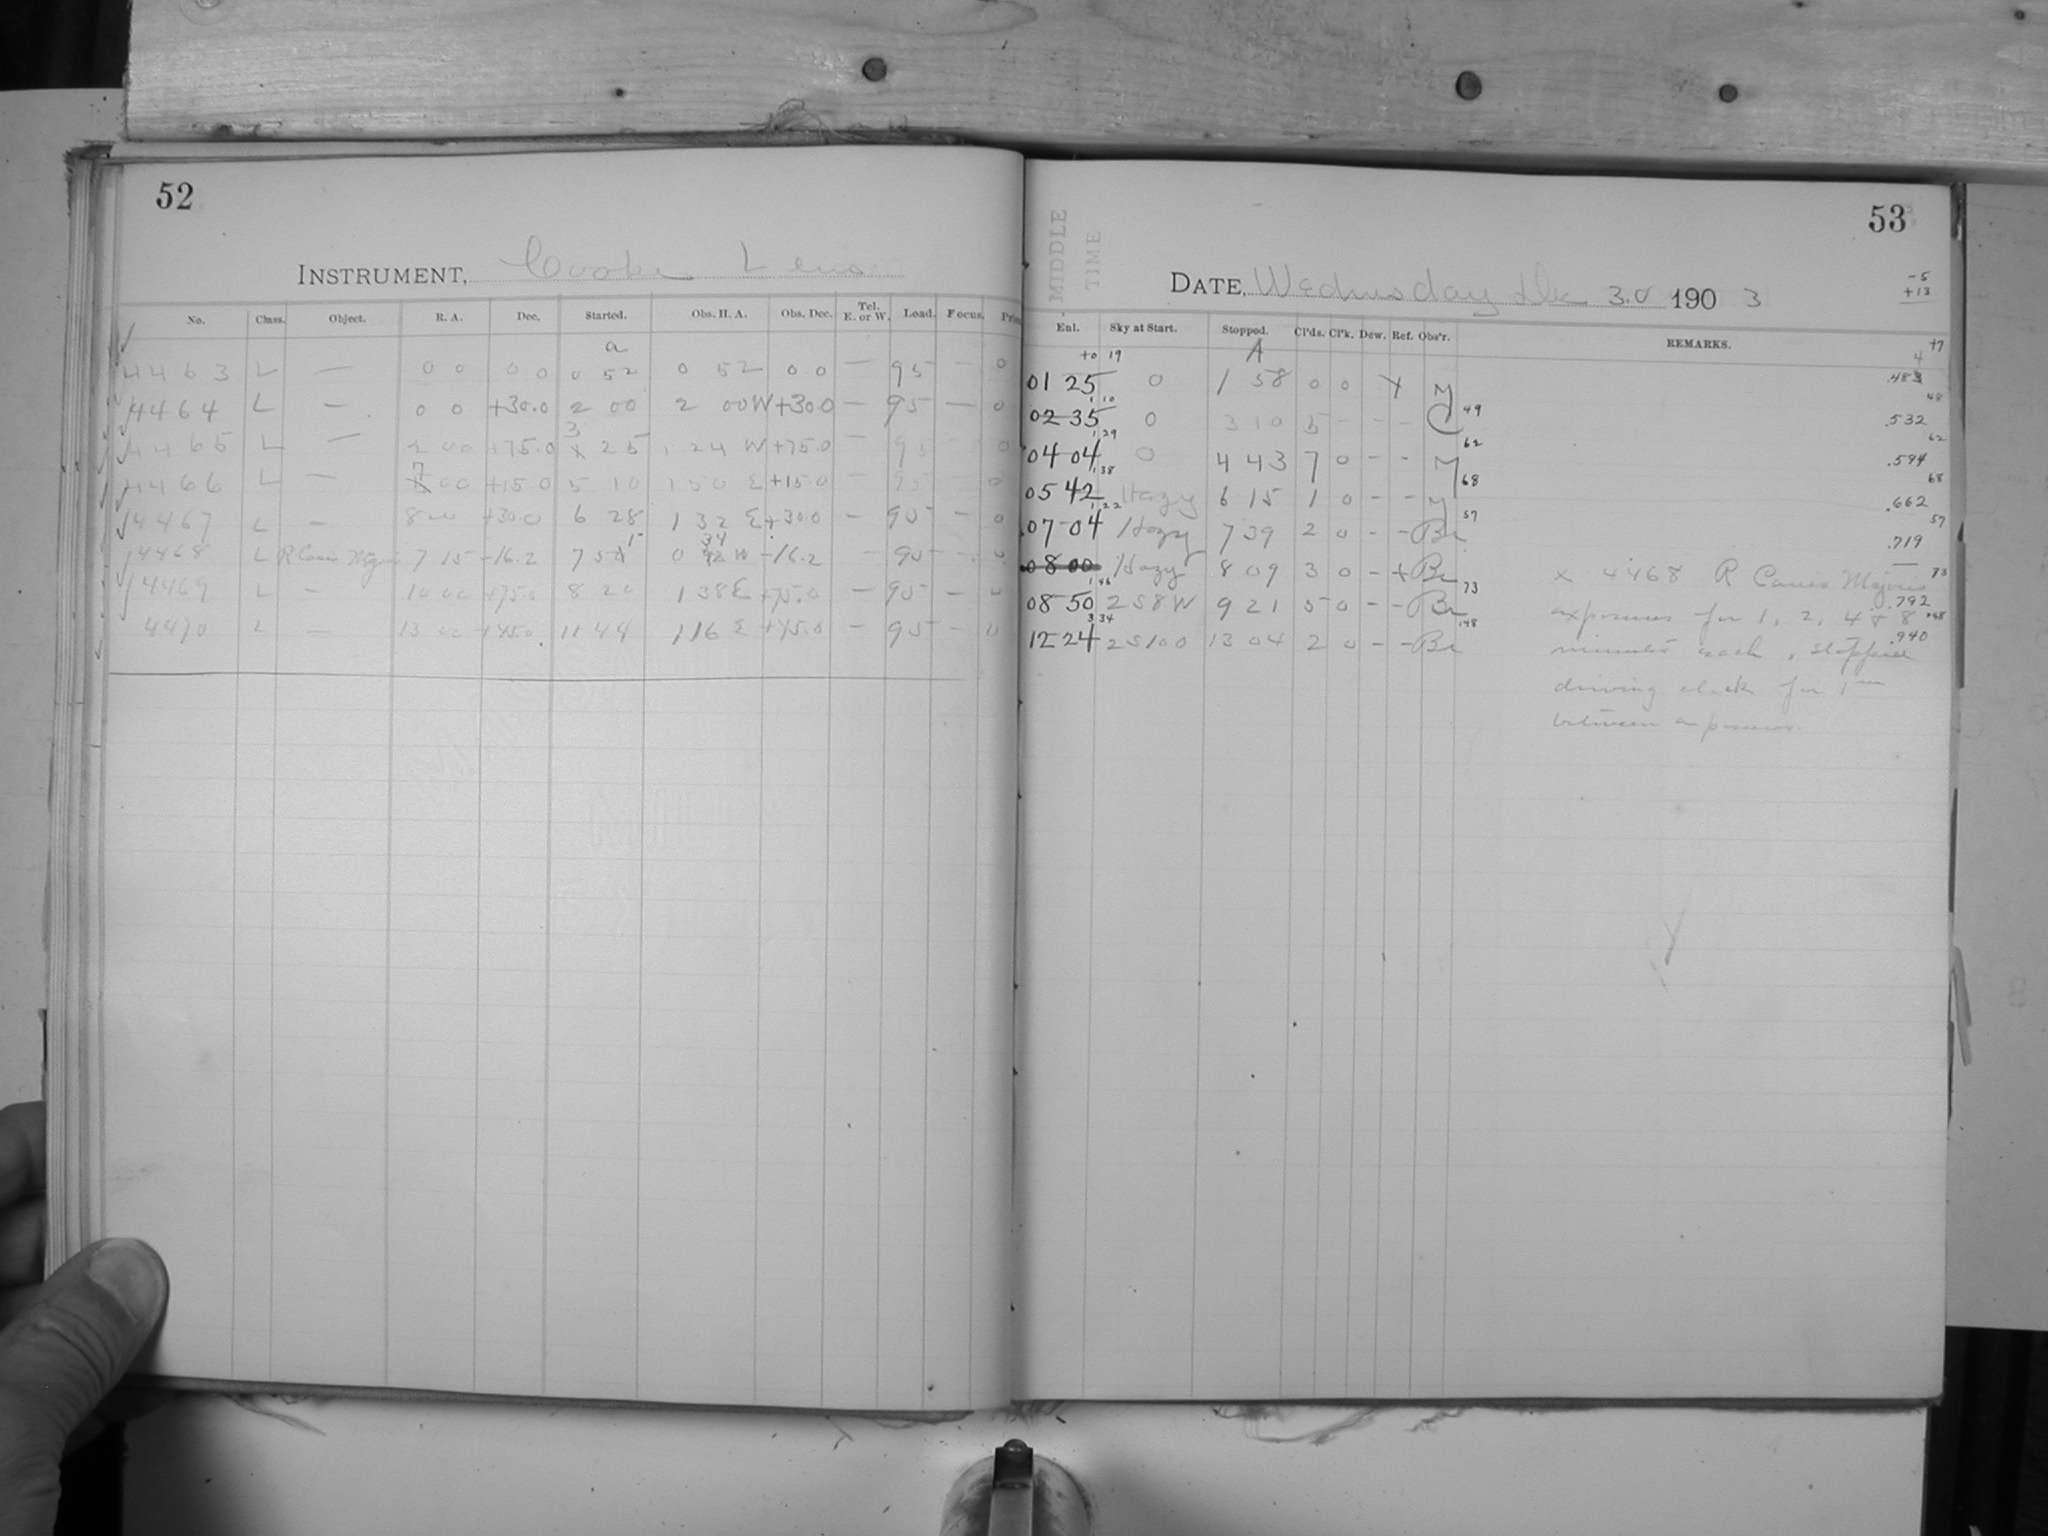 52
INSTRUMENT, Cooke Lens
No. Class. Object. R. A. Dec. Started. Obs. H. A. Obs. Dec. Tel. E. or W. Load. Focus.
a
4463 L — 0 0 0 0 0 52 0 52 0.0 — 95 — 0
4464 L — 0 0 +30.0 2 00 2 00 W +30.0 — 95 — 0
3
4465 L — 2 00 +75.0 x 25 1 24 W +75.0 — 95 0
7
4466 L — 00 +15.0 5 10 1 50 E +15.0 — 95 — 0
4467 L — 8 00 +30.0 6 28 1 32 E +30.0 — 95 — 0
4468 L R Canis Majoris 7 15 -16.2 7 51 0 34 W -16.2 — 95 — 0
4469 L — 10 00 +75.0 8 20 1 38 E +75.0 — 95 — 0
4470 L — 13 00 +45.0 11 44 1 16 E +45.0 — 95 — 0
53
MIDDLE
TIME
DATE, Wednesday Dec 30 1903
-5
+13
Enl. Sky at Start. Stopped. Cl'ds. Cl'k. Dew. Ref. Obs'r. REMARKS.
+7
+0 19 A 4
01 25 0 1 58 0 0 Y M .483
1 10 49 48
02 35 0 3 10 5 - - - C .532
1 29 62 62
04 04 0 4 43 7 0 - - M .594
1 38 68 68
05 42 Hazy 6 15 1 0 - - M .662
1 22 57 57
07 04 Hazy 7 39 2 0 - - Br .719
08 00 Hazy 8 09 3 0 - + Br x 4468 R Canis Majoris
1 46 73 73
08 50 2 S 8 W 9 21 5 0 - - Br .792
exposures for 1, 2, 4 & 8
3 34 .148
12 24 2 S 10 0 13 04 2 0 - - Br .940
minutes each, stopped
driving clock for 1m
between exposures.